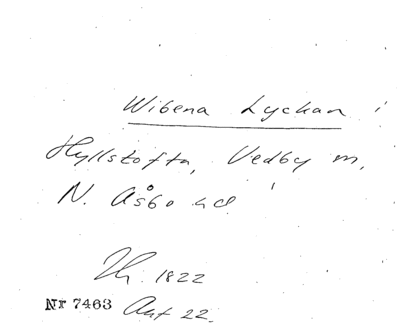 Wibena Lyckan i
Hyllstofta, Vedby m,
N. Åsbo hd
Th. 1822
Nr 7463 Akt 22.